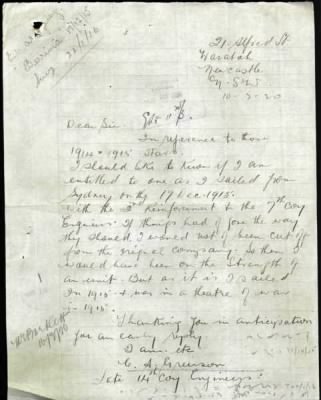 21 Alfred St
Waratah
Newcastle
N.S.W
10-3-20
Dear Sir
In reference to those
1914 + 1915 Stars
I should like to know if I am
entitled to one as I sailed from
Sydney on the 17 Dec. 1915.
with the 3rd Reinforcement to the 7th Coy
Engineers. If things had of gone the way
they should I would not of been cut off
from the original company. So then
would have been on the strength of
an unit. But as it is I sailed
In 1915 + was in a theatre of war
in 1915.
Thanking you in anticipation
for an early reply
I am etc
C. A.
Late 14th Coy Engineers